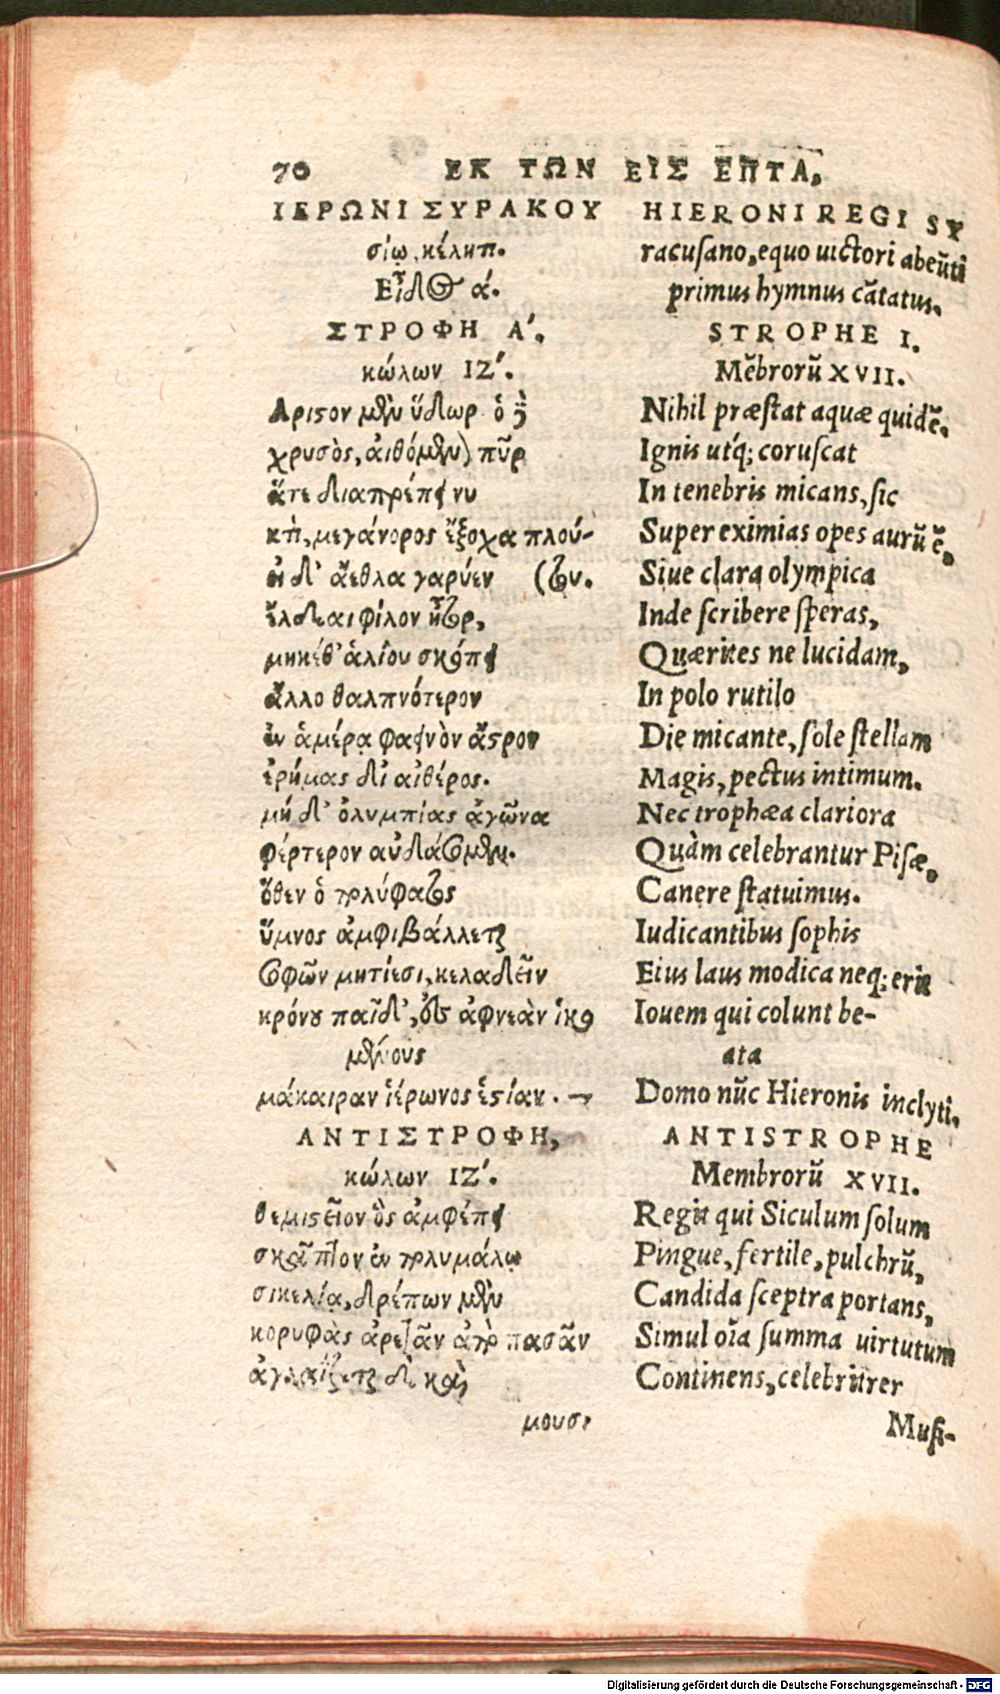 70 ΕΚ ΤΩΝ ΕΙΣ ΕΠΤΑ,
ΙΕΡΩΝΙ ΣΥΡΑΚΟΥ
σίῳ κέλητι.
Εἶδος ά.
ΣΤΡΟΦΗ Α΄.
κώλων ΙΖ΄.
Αριστον μὲν ὕδωρ ὁ δὲ
χρυσὸς, αἰθόμενον πῦρ
ἅτε διαπρέπει νυ
κτὶ, μεγάνορος ἔξοχα πλού-
εἰ δ' ἄεθλα γαρύεν (του.
ἔλδεαι φίλον ἦτορ,
μηκέθ' ἁλίου σκόπει
ἄλλο θαλπνότερον
ἐν ἁμέρᾳ φαεινὸν ἄστρον
ἐρήμας δι' αἰθέρος.
μή δ' ὀλυμπίας ἀγῶνα
φέρτερον αὐδάσομεν.
ὅθεν ὁ πολύφατος
ὕμνος ἀμφιβάλλεται
σοφῶν μητίεσι, κελαδεῖν
κρόνου παῖδ', ἐς ἀφνεὰν ἱκο
μένους
μάκαιραν ἱέρωνος ἑστίαν. ⁓
ΑΝΤΙΣΤΡΟΦΗ,
κώλων ΙΖ΄.
θεμιστεῖον ὃς ἀμφέπει
σκᾶπτον ἐν πολυμάλῳ
σικελίᾳ, δρέπων μὲν
κορυφὰς ἀρετᾶν ἀπὸ πασᾶν
ἀγλαΐζεται δὲ καὶ
μουσι
HIERONI REGI SY
racusano, equo uictori abeūti
primus hymnus cātatus.
STROPHE I.
Mēbrorū XVII.
Nihil præstat aquæ quidē.
Ignis utq́; coruscat
In tenebris micans, sic
Super eximias opes aurū ē.
Siue clara olympica
Inde scribere speras,
Quærites ne lucidam,
In polo rutilo
Die micante, sole stellam
Magis, pectus intimum.
Nec trophæa clariora
Quàm celebrantur Pisæ,
Canere statuimus.
Iudicantibus sophis
Eius laus modica neq; erit
Iouem qui colunt be-
ata
Domo nūc Hieronis inclyti.
ANTISTROPHE
Membrorū XVII.
Regit qui Siculum solum
Pingue, fertile, pulchrū,
Candida sceptra portans,
Simul oīa summa uirtutum
Continens, celebriter
Musi-
Digitalisierung gefördert durch die Deutsche Forschungsgemeinschaft - DFG